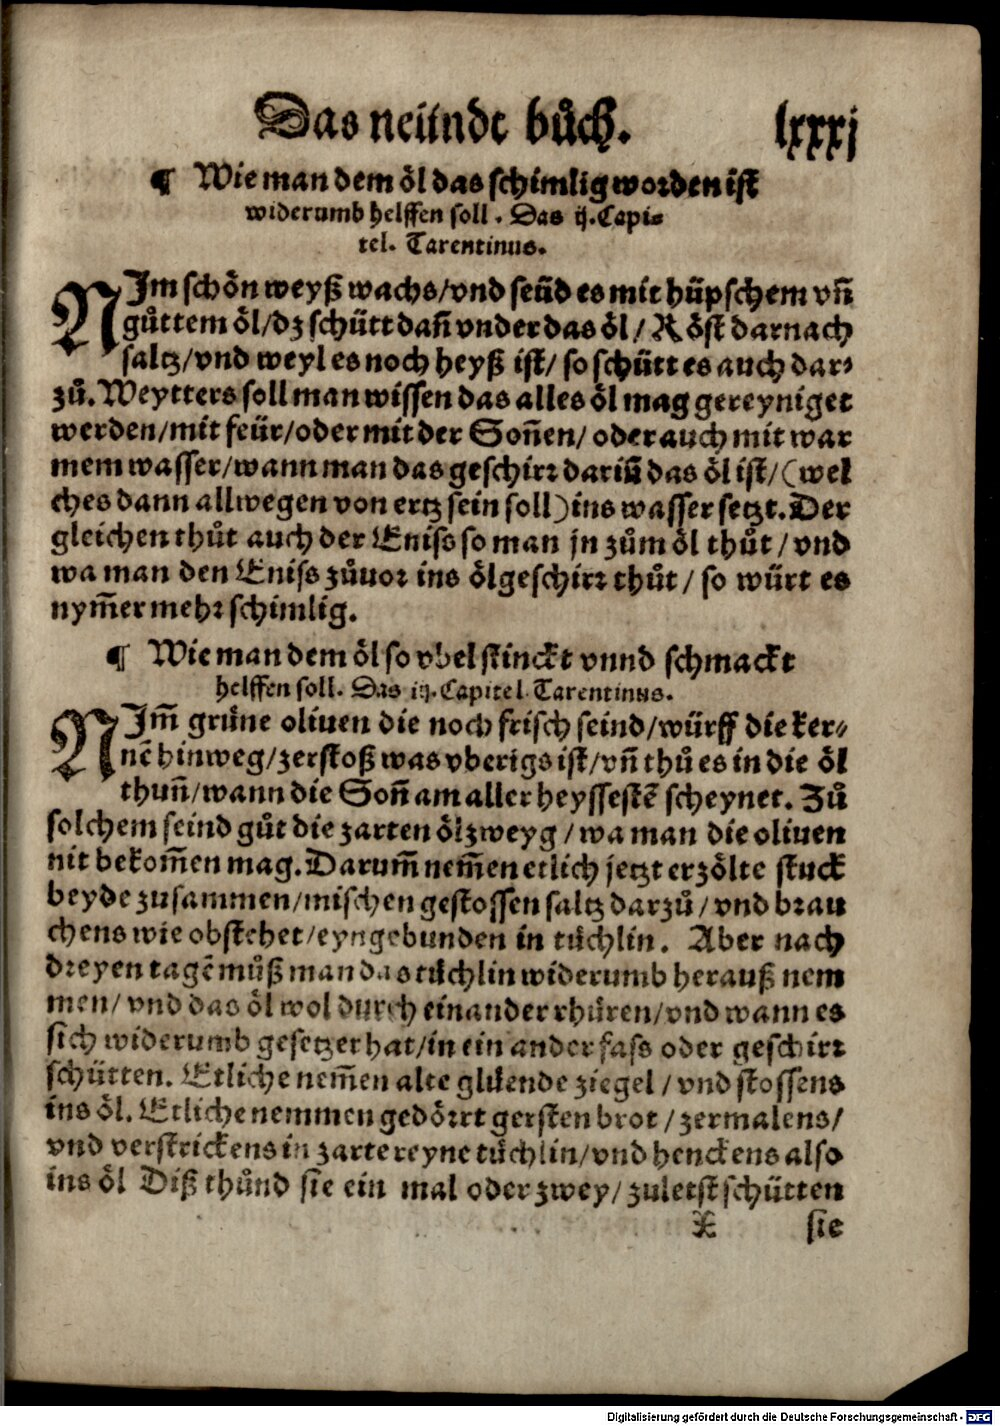 Das neündt bůch. lxxxj
¶ Wie man dem öl das schimlig worden ist
widerumb helffen soll. Das ij. Capi⸗
tel. Tarentinus.
NJm schön weyß wachs/vnd seüd es mit hüpschem vñ
gůttem öl/dz schütt dañ vnder das öl/ Röst darnach
saltz/vnd weyl es noch heyß ist/ so schütt es auch dar⸗
zů. Weytters soll man wissen das alles öl mag gereyniget
werden/mit feür/oder mit der Soñen/ oder auch mit war
mem wasser/wann man das geschirꝛ dariñ das öl ist/(wel
ches dann allwegen von ertz sein soll)ins wasser setzt. Der
gleichen thůt auch der Eniss so man jn zům öl thůt/ vnd
wa man den Eniss zůuoꝛ ins ölgeschirꝛ thůt/ so würt es
nym̃er mehꝛ schimlig.
¶ Wie man dem öl so vbel stinckt vnnd schmackt
helffen soll. Das iij. Capitel. Tarentinus.
NJm̃ grüne oliuen die noch frisch seind/würff die ker⸗
nẽ hinweg/zerstoß was vberigs ist/vñ thů es in die öl
thuñ/wann die Soñ am aller heyssestẽ scheynet. Zů
solchem seind gůt die zarten ölzweyg/wa man die oliuen
nit bekom̃en mag. Darum̃ nem̃en etlich jetzt erzölte stuck
beyde zusammen/mischen gestossen saltz darzů/ vnd bꝛau
chens wie obstehet/eyngebunden in tüchlin. Aber nach
dꝛeyen tagẽ můß man das tüchlin widerumb herauß nem
men/ vnd das öl wol durch einander rhüren/vnd wann es
sich widerumb gesetzet hat/in ein ander fass oder geschirꝛ
schütten. Etliche nem̃en alte glüende ziegel/ vnd stossens
ins öl. Etliche nemmen gedöꝛrt gersten brot/zermalens/
vnd verstrickens in zarte reyne tüchlin/vnd henckens also
ins öl Diß thůnd sie ein mal oder zwey/ zuletst schütten
X sie
Digitalisierung gefördert durch die Deutsche Forschungsgemeinschaft - DFG